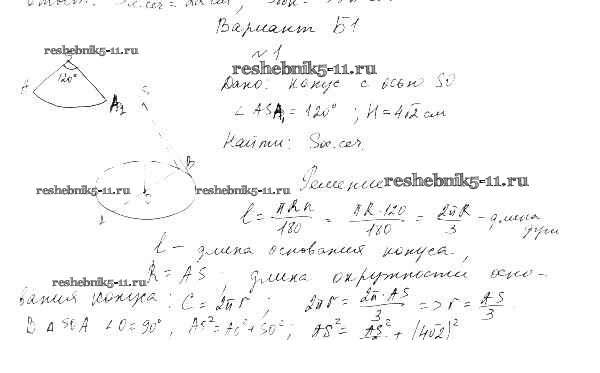 Sос.сеч =
Вариант Б1
reshebnik5-11.ru
№1
120°
reshebnik5-11.ru
A₁
S
Дано: конус с осью SO
∠ASA₁ = 120°; H = 4√2 см
Найти: Sос.сеч.
B
reshebnik5-11.ru
reshebnik5-11.ru
O
A
Решение
reshebnik5-11.ru
l = πRn/180 = πR·120/180 = 2πR/3 - длина дуги
l - длина основания конуса,
reshebnik5-11.ru
R = AS; длина окружности осно-
вания конуса: C = 2πr; 2πr = 2π·AS/3 => r = AS/3.
В △SOA ∠O = 90°, AS² = AO² + SO²; AS² = AS²/9 + (4√2)²